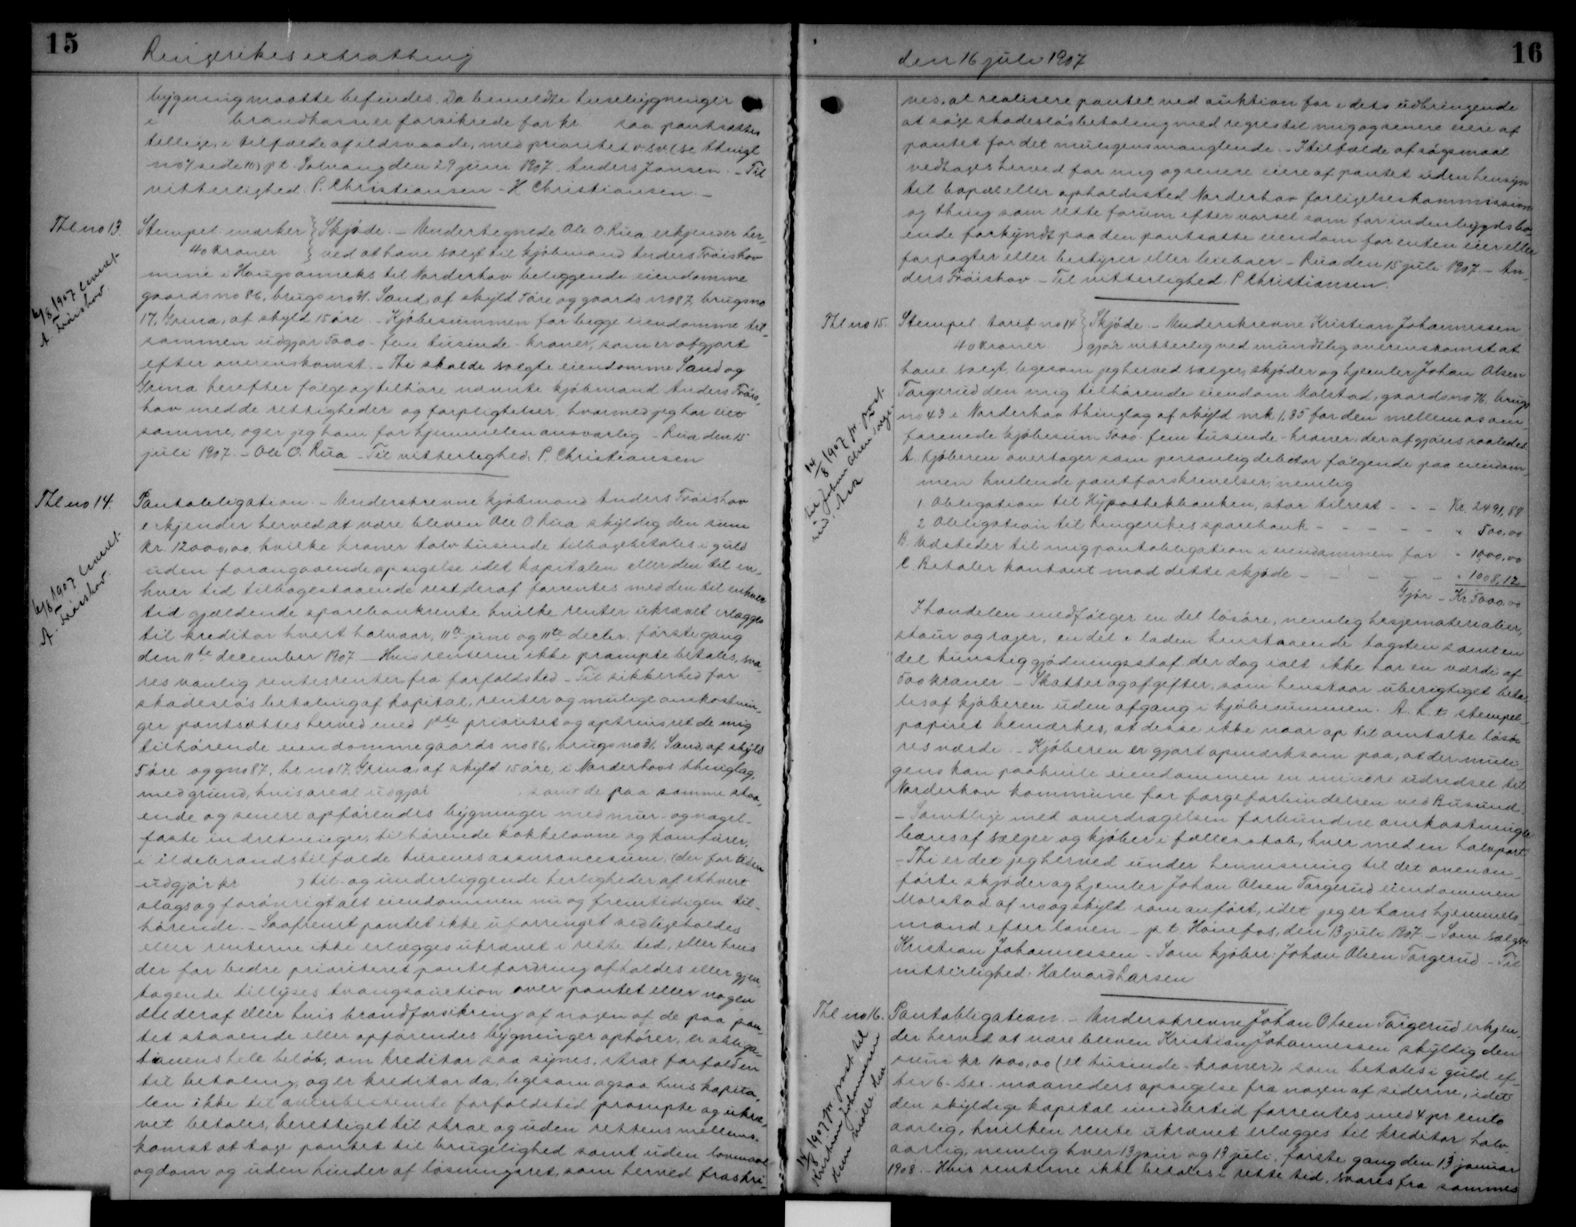 15
Ringerikes extrathing
bygning maatte befindes. Da bemeldte husebygninger
i brandkassen forsikrede for kr saa pantsættes
tillige i tilfælde af ildsvaade, med prioritet o.s.v. (se thingl
no 7 side 11) p.t. Solvang den 29 juni 1907. Anders Jansen. – Til
vitterlighed: P. Christiansen – H. Christiansen. –
Thl no 13.
Stempel. mærker } Skjøde. – Undertegnede Ole O. Rua erkjender her-
40 kroner } ved at have solgt til kjøbmand Anders Trøishov
mine i Haugs anneks til Norderhov beliggende eiendomme
gaards no 86, brugs no 31 Sand, af skyld 5 øre og gaards no 87, brugs no
17, Grina, af skyld 15 øre. – Kjøbesummen for begge eiendomme til-
sammen udgjør 5000 – fem tusinde – kroner, som er afgjort
efter overenskomst. – Thi skal de solgte eiendomme Sand og
Grina herefter følge og tilhøre nævnte kjøbmand Anders Trøis-
hov med de rettigheder og forpligtelser, hvormed jeg har eiet
samme, og er jeg ham for hjemmelen ansvarlig – Rua den 15
juli 1907. – Ole O. Rua – Til vitterlighed: P. Christiansen
6/8 1907 leveret
A. Trøishov
Thl no 14.
Pantobligation. – Underskrevne kjøbmand Anders Trøishov
erkjender herved at være bleven Ole O Rua skyldig den sum
kr. 12000,00, hvilke kroner tolv tusinde tilbagebetales i guld
uden forangaaende opsigelse idet kapitalen eller den til en-
hver tid tilbagestaaende rest deraf forrentes med den til enhver
tid gjældende sparebankrente hvilke renter ukrævet erlægges
til kreditor hvert halvaar, 11te juni og 11te decbr, første gang
den 11te december 1907 – Hvis renterne ikke prompte betales, sva-
res vanlig rentesrenter fra forfaldstid – Til sikkerhed for
skadesløs betaling af kapital, renter og mulige omkostnin-
ger pantsættes herved med 1ste prioritet og optrinsret de mig
tilhørende eiendomme gaards no 86, brugs no 31, Sand, af skyld
5 øre og g no 87, br no 17, Grina, af skyld 15 øre, i Norderhovs thinglag,
med grund, hvis areal udgjør samt de paa samme staa-
ende og senere opførendes bygninger med mur- og nagel-
faste indretninger, tilhørende kakkelovne og komfurer,
i ildebrandstilfælde husenes assurancesum, (der for tiden
udgjør kr ) til- og underliggende herligheder af ethvert
slags og forøvrigt alt eiendommen nu og fremtidigen til-
hørende. – Saafremt pantet ikke uforringet vedligeholdes
eller renterne ikke erlægges ukrævet i rette tid, eller hvis
der for bedre prioriteret pantefordring afholdes eller gjen-
tagende tillyses tvangsauction over pantet eller nogen
del deraf eller hvis brandforsikring af nogen af de paa pan-
tet staaende eller opførendes bygninger ophører, er obliga-
tionens hele beløb, om kreditor saa synes, strax forfalden
til betaling, og er kreditor da, ligesom ogsaa hvis kapita-
len ikke til ovenbestemte forfaldstid prompte og ukræ-
vet betales, berettiget til strax og uden rettens mellem-
komst at tage pantet til brugelighed samt uden lovmaal
og dom og uden hinder af løsningsret, som herved fraskri-
6/8 1907 leveret
A. Trøishov
16
den 16 juli 1907
ves, at realisere pantet ved auktion for i dets udbringende
at søge skadesløs betaling med regres til mig og senere eiere af
pantet for det muligens manglende. – I tilfælde af søgsmaal
vedtages herved for mig og senere eiere af pantet uden hensyn
til bopæl eller opholdssted Norderhov forligelseskommission
og thing som rette forum efter varsel som for indenbygds bo-
ende forkyndt paa den pantsatte eiendom for enten eier eller
forpagter eller bestyrer eller leieboer – Rua den 15 juli 1907. – An-
ders Trøishov – Til vitterlighed P Christiansen.
Thl no 15.
Stempel. tarif no 14 } Skjøde. – Underskrevne Kristian Johannessen
40 kroner } gjør vitterlig ved mundtlig overenskomst at
have solgt ligesom jeg herved sælger, skjøder og hjemler Johan Olsen
Torgerud den mig tilhørende eiendom Molstad, gaards no 76, brugs
no 43 i Norderhov thinglag af skyld mrk. 1,35 for den mellem os om-
forenede kjøbesum 5000 – fem tusinde – kroner, der afgjøres saaledes:
A. Kjøberen overtager som personlig debitor følgende paa eiendom-
men heftende pantforskrivelser, nemlig
1 Obligation til Hypothekbanken, stor tilrest – – – Kr. 2491,88
2 Obligation til Ringerikes sparebank – – – – – " 500,00
B. Udsteder til mig pantobligation i eiendommen for " 1000,00
C. Betaler kontant mod dette skjøde – – – – – " 1008,12
Gjør – Kr 5000,00
I handelen medfølger en del løsøre, nemlig hesjematerialier,
staur og rajer, en del i laden henstaaende tagsten samt en
del kunstig gjødningsstof der dog ialt ikke har en værdi af
500 kroner – Skatter og afgifter, som henstaar uberigtiget beta-
les af kjøberen uden afgang i kjøbesummen. A. h. t. stempel-
papiret bemærkes, at disse ikke naar op til omtalte løsø-
res værdi. – Kjøberen er gjort opmærksom paa, at der muli-
gens kan paahvile eiendommen en mindre udredsel til
Norderhov kommune for forgeforbindelsen ved Busund.
– Samtlige med overdragelsen forbundne omkostninger
bæres af sælger og kjøber i fællesskab, hver med en halvpart.
– Thi er det jeg herved under henvisning til det ovenan-
førte skjøder og hjemler Johan Olsen Torgerud eiendommen
Molstad af no og skyld som anført, idet jeg er hans hjemmels-
mand efter loven – p. t. Hønefos, den 13 juli 1907 – Som sælger:
Kristian Johannessen – Som kjøber: Johan Olsen Torgerud – Til
vitterlighed: Halvard Larsen
14/8 1907 pr. post
Thl no 16.
Pantobligation. – Underskrevne Johan Olsen Torgerud erkjen-
der herved at være bleven Kristian Johannessen skyldig den
sum kr 1000,00 (et tusinde kroner), som betales i guld ef-
ter 6 – sex – maaneders opsigelse fra nogen af siderne, idet
den skyldige kapital imidlertid forrentes med 4 pr cento
aarlig, hvilken rente ukrævet erlægges til kreditor halv-
aarlig, nemlig hver 13 januar og 13 juli, første gang den 13 januar
1908. – Hvis renterne ikke betales i rette tid, svares fra sammes
14/8 1907 pr. post til
Kristian Johannessen